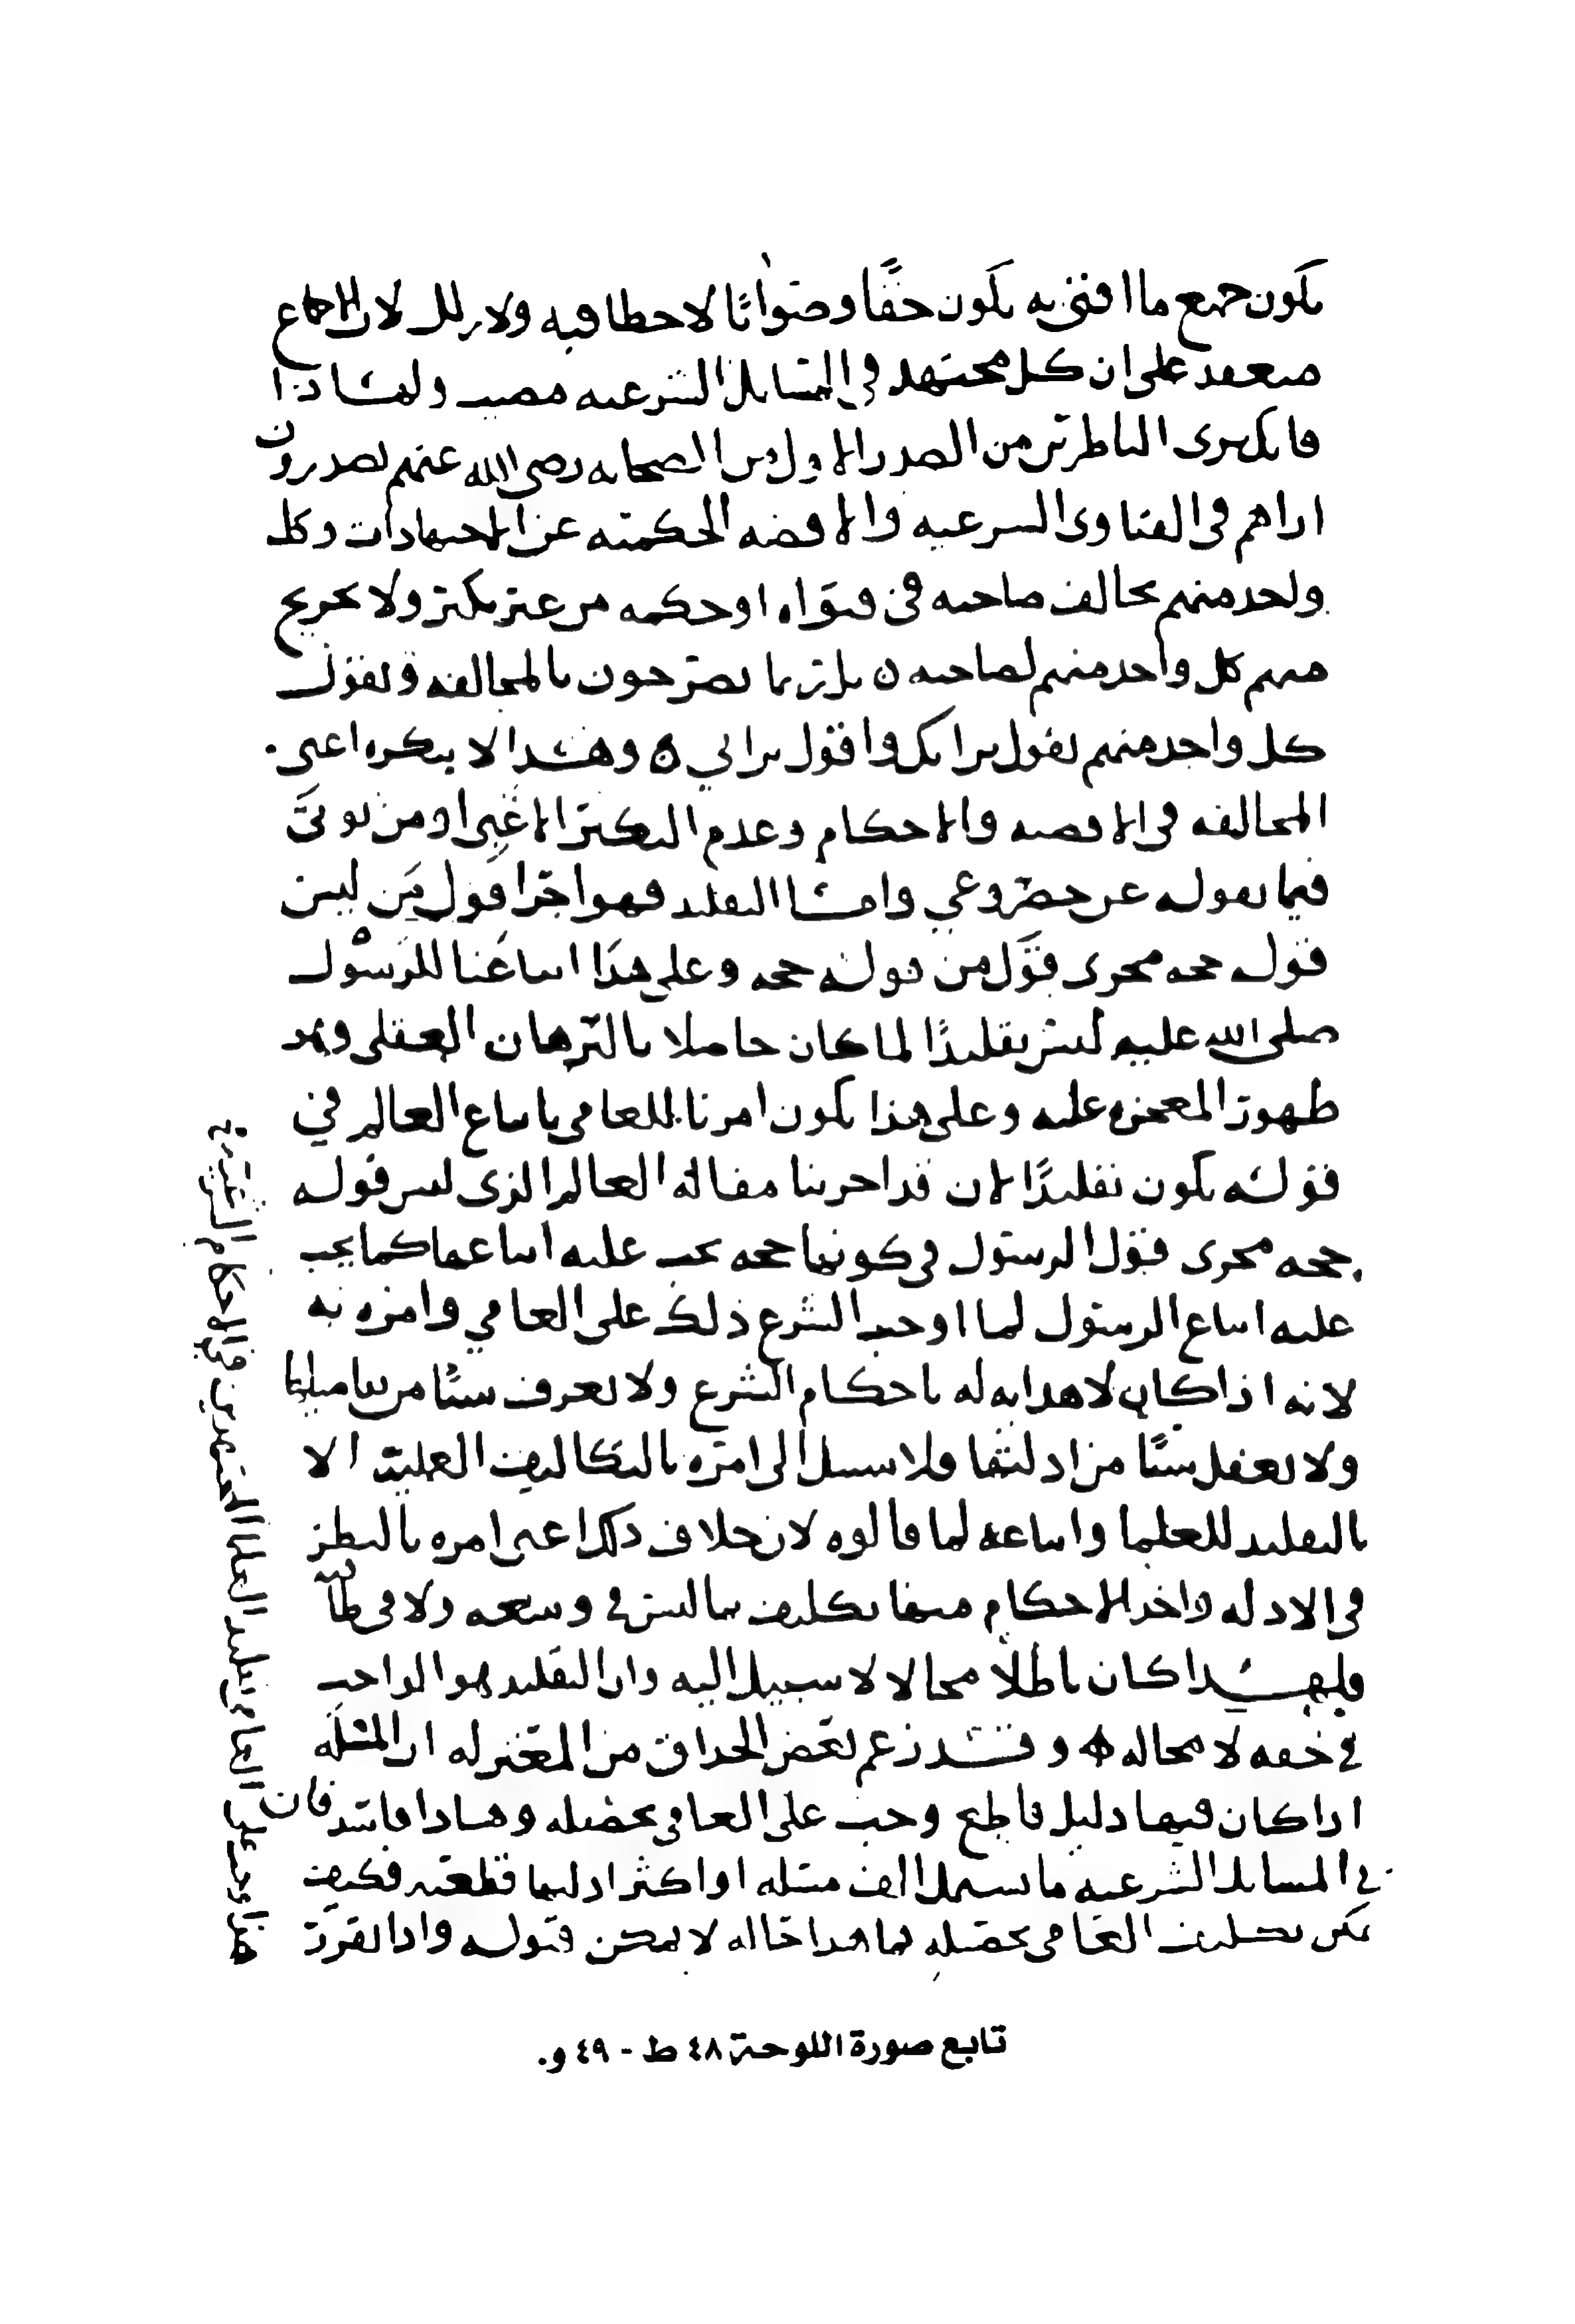 يكون جميع ما افتى به يكون حقًا وصوابًا لا خطا فيه ولا زلل لان الاجماع
منعقد على ان كل مجتهد في المسايل الشرعيه مصيب ولهذا
فانك ترى الناظرين من الصدر الاول من الصحابه رضي الله عنهم يصدرون
اراهم في الفتاوى الشرعيه والاقضه الحكميه عن الاجتهادات وكل
واحد منهم يخالف صاحبه في فتواه او حكمه من غير نكير ولا تحريج
منهم كل واحد منهم لصاحبه ه بل ربما يصرحون بالمخالفه ويقول
كل واحد منهم نقول برايك واقول برايي ه وهذا لا ينكره اعني
المخالفه في الاقضيه والاحكام وعدم النكير الا غبي او من لا يوثق
فيما يقوله عن حصر وعي واما التقليد فهو اجرا قول من ليس
قوله حجه مجرى قول من قوله حجه وعلى هذا اتباعنا للرسول
صلى الله عليه ليس تقليدًا لما كان حاصلا بالبرهان العقلي وهو
ظهور المعجزه عليه وعلى هذا يكون امرنا للعامي باتباع العالم في
قوله يكون تقليدًا لان قد اجرينا مقاله العالم الذي ليس قوله
حجه مجرى قول الرسول في كونها حجه يجب عليه اتباعها كما يجب
عليه اتباع الرسول لما اوجب الشرع ذلك على العامي وامره به
لانه اذا كان لا هدايه له باحكام الشرع ولا يعرف شيئًا من تفاصيلها
ولا يعقل شيئًا من ادلتها فلا سبيل الى امره بالتكاليف العمليه الا
بالتقليد للعلما واتباعه لما قالوه لان خلاف ذلك اعني امره بالنظر
في الادله واخذ الاحكام منها تكليف بما ليس في وسعه ولا في طاقته
فلهذا كان باطلًا محالا لا سبيل اليه وان التقليد هو الواجب
في حقه لا محاله ه وقد زعم بعض الحذاق من المعتزله ان المسله
اذا كان فيها دليل قاطع وجب على العامي تحصيله وهذا فاسد فان
في المسايل الشرعيه ما يشمل الف مسله او اكثر ادلتها قطعيه فكيف
يمكن تكليف العامي تحصيله لها هذا محاله لا يمكن قبوله واذا تقرر
هذا وجب على العامي تقليد العلما المجتهدين في الاحكام الشرعية
تابع صورة اللوحة ٤٨ ط - ٤٩ و.